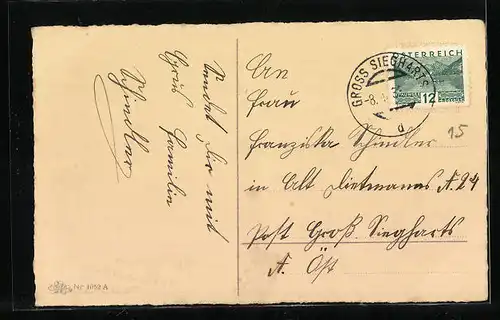 Sendet Dir mit
Gruß Familie
Schindler
An
Frau
Franziska Schindler
in Alt Dietmanns N. 24
Post Groß-Siegharts
N. Öst
GROSS SIEGHARTS
-8.
d
ÖSTERREICH
12
15
Nr. 1052 A